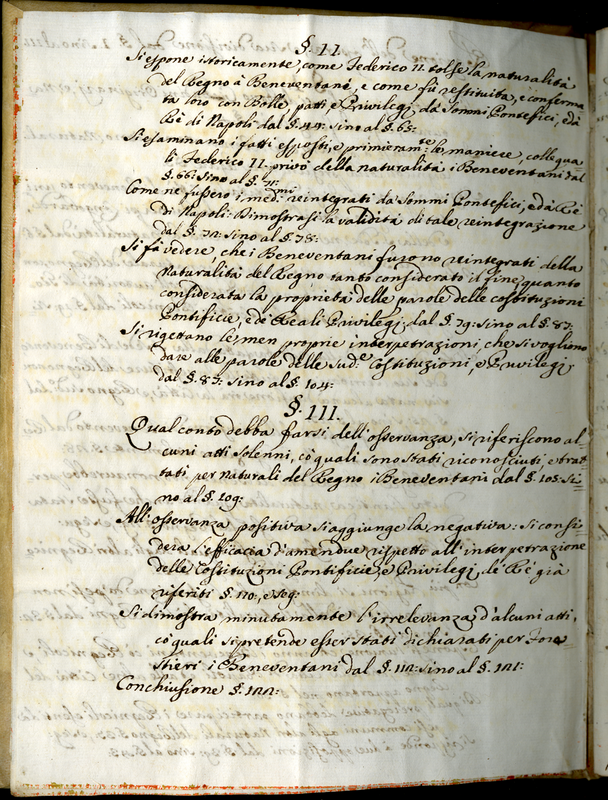 §. II.
Si espone istoricamente, come Federico II. tolse la naturalità
del Regno à Beneventani, e come fù restituita, e conferma
ta loro con Bolle, patti, e Privilegj dà Sommi Pontefici, e dà
Rè di Napoli dal §. 44: sino al §. 65:
Si esaminano i fatti esposti, e primieramte. le maniere, colle qua
li Federico II. privò della naturalità i Beneventani dal
§. 66: sino al §. 71:
Come ne fussero i medmi: reintegrati da Sommi Pontefici, e dà Rè
di Napoli: Dimostrasi la validità di tale reintegrazione
dal §. 72: sino al §. 78:
Si fà vedere, che i Beneventani furono reintegrati della
Naturalità del Regno tanto considerato il fine, quanto
considerata la proprietà delle parole delle costituzioni
Pontificie, e dè Reali Privilegj, dal §. 79: sino al §. 87:
Si rigettano le men proprie interpetrazioni, che si vogliono
dare alle parole delle Sude. Costituzioni, e Privilegj
dal §. 87: sino al §. 104:
§. III.
Qual conto debba farsi dell'osservanza, si riferiscono al
cuni atti solenni, co' quali sono stati riconosciuti, e trat
tati per naturali del Regno i Beneventani dal §. 105: Si=
no al §. 109:
All'osservanza positiva si aggiunge la negativa: Si consi
dera l'efficacia d'amendue rispetto all'interpetrazione
delle Costituzioni Pontificie, e Privilegj de' Rè già
riferiti §. 110:, e seg:
Si dimostra minutamente l'irrelevanza d'alcuni atti,
co' quali si pretende esser stati dichiarati per Fora=
stieri i Beneventani dal §. 112: sino al §. 121:
Conchiusione §. 122: